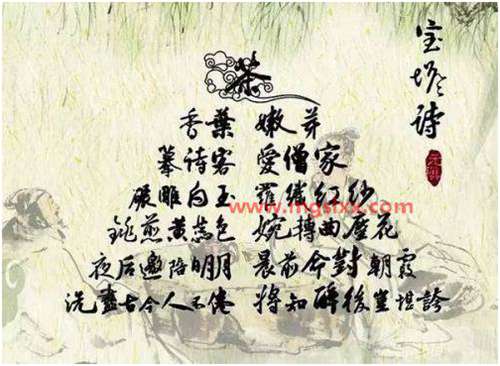 宝塔诗
茶
香葉 嫩芽
慕诗客 愛僧家
碾雕白玉 羅織红纱
銚煎黄蕊色 婉轉曲塵花
夜后邀陪明月 晨前命對朝霞
洗盡古今人不倦 將知醉後豈堪誇
www.mgslxx.com